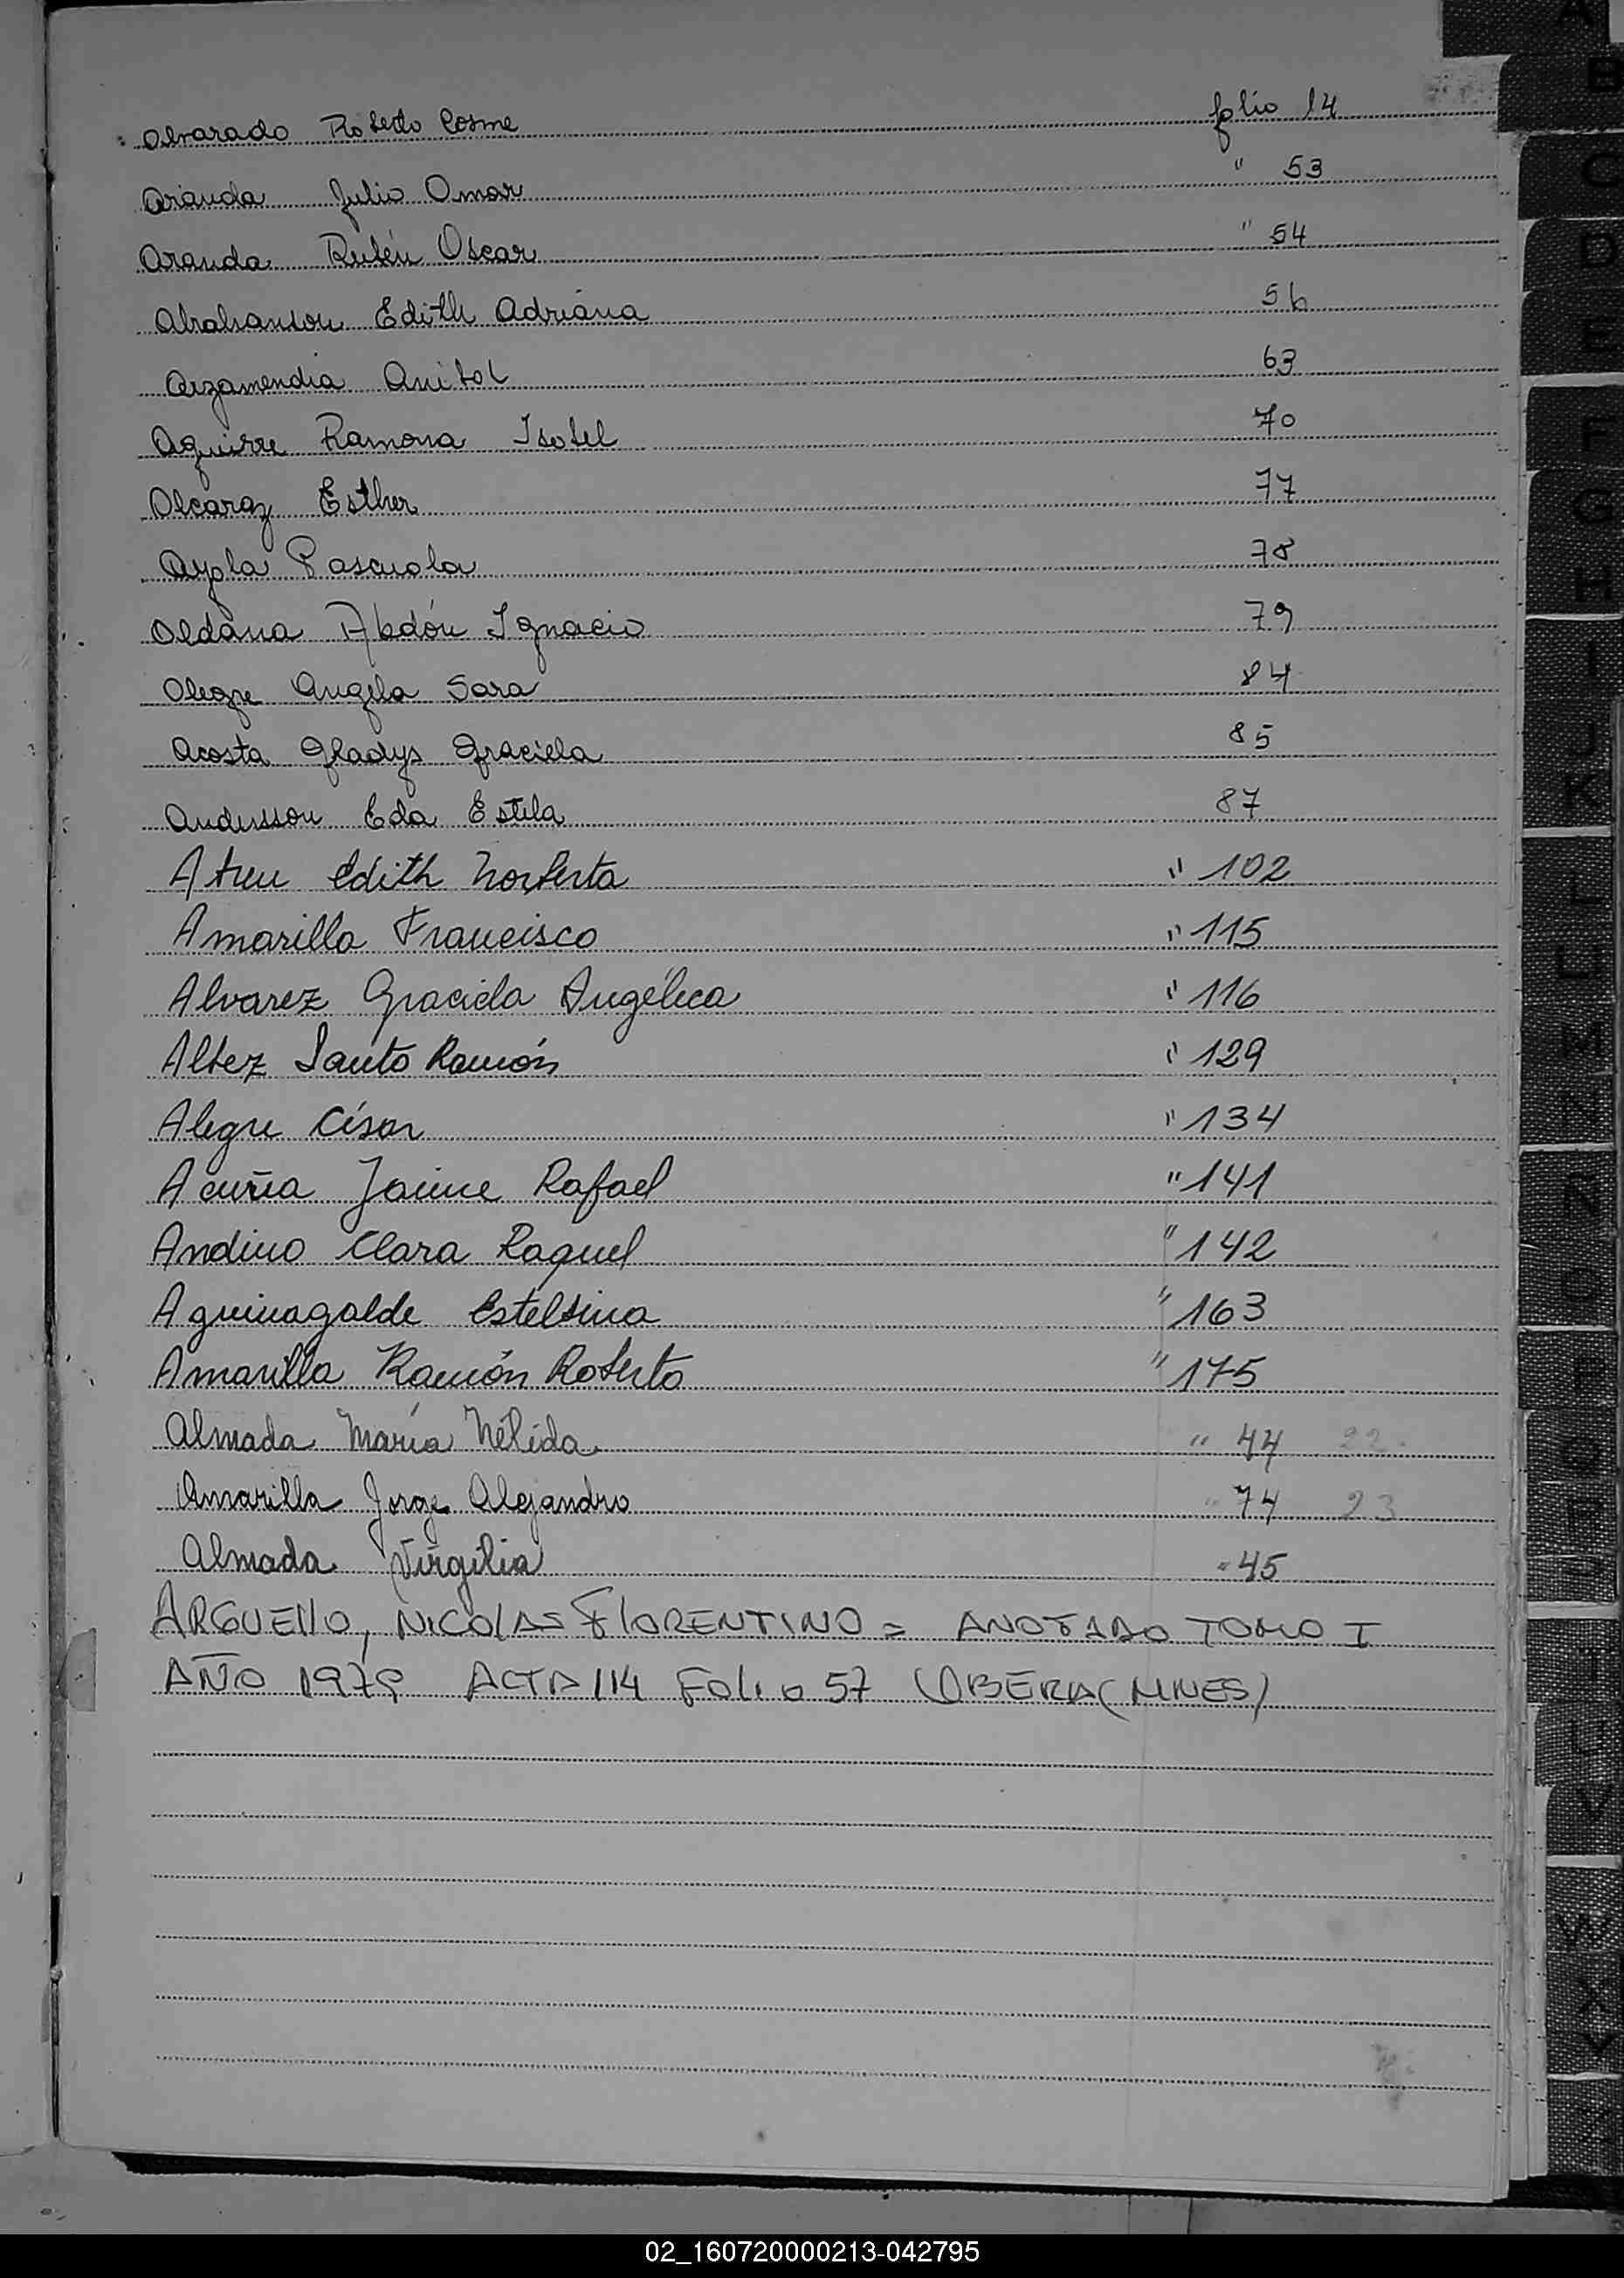 Alvarado Roberto Cosme folio 14
Aranda Julio Omar " 53
Aranda Rubén Oscar " 54
Abrahanson Edith Adriana 56
Arzamendia Anibal 63
Aguirre Ramona Isabel 70
Alcaraz Esther 77
Ayala Pascuala 78
Aldana Abdón Ignacio 79
Alegre Angela Sara 84
Acosta Gladys Graciela 85
Andersson Eda Estela 87
Edith Norberta " 102
Amarilla Francisco " 115
Alvarez Graciela Angélica " 116
Altez Santo Ramón " 129
Alegre César " 134
Acuña Jaime Rafael " 141
Andino Clara Raquel " 142
Aguinagalde Estelbina " 163
Amarilla Ramón Roberto " 175
Almada María Nélida " 44 22
Amarilla Jorge Alejandro " 74 23
Almada Virgilia " 45
ARGUELLO, NICOLAS FLORENTINO = ANOTADO TOMO I
AÑO 1979 ACTA 114 FOLIO 57 OBERA (MNES)
A
B
C
D
E
F
G
H
I
J
K
L
LL
M
N
Ñ
O
P
Q
R
S
T
U
V
W
X
Y
Z
02_160720000213-042795